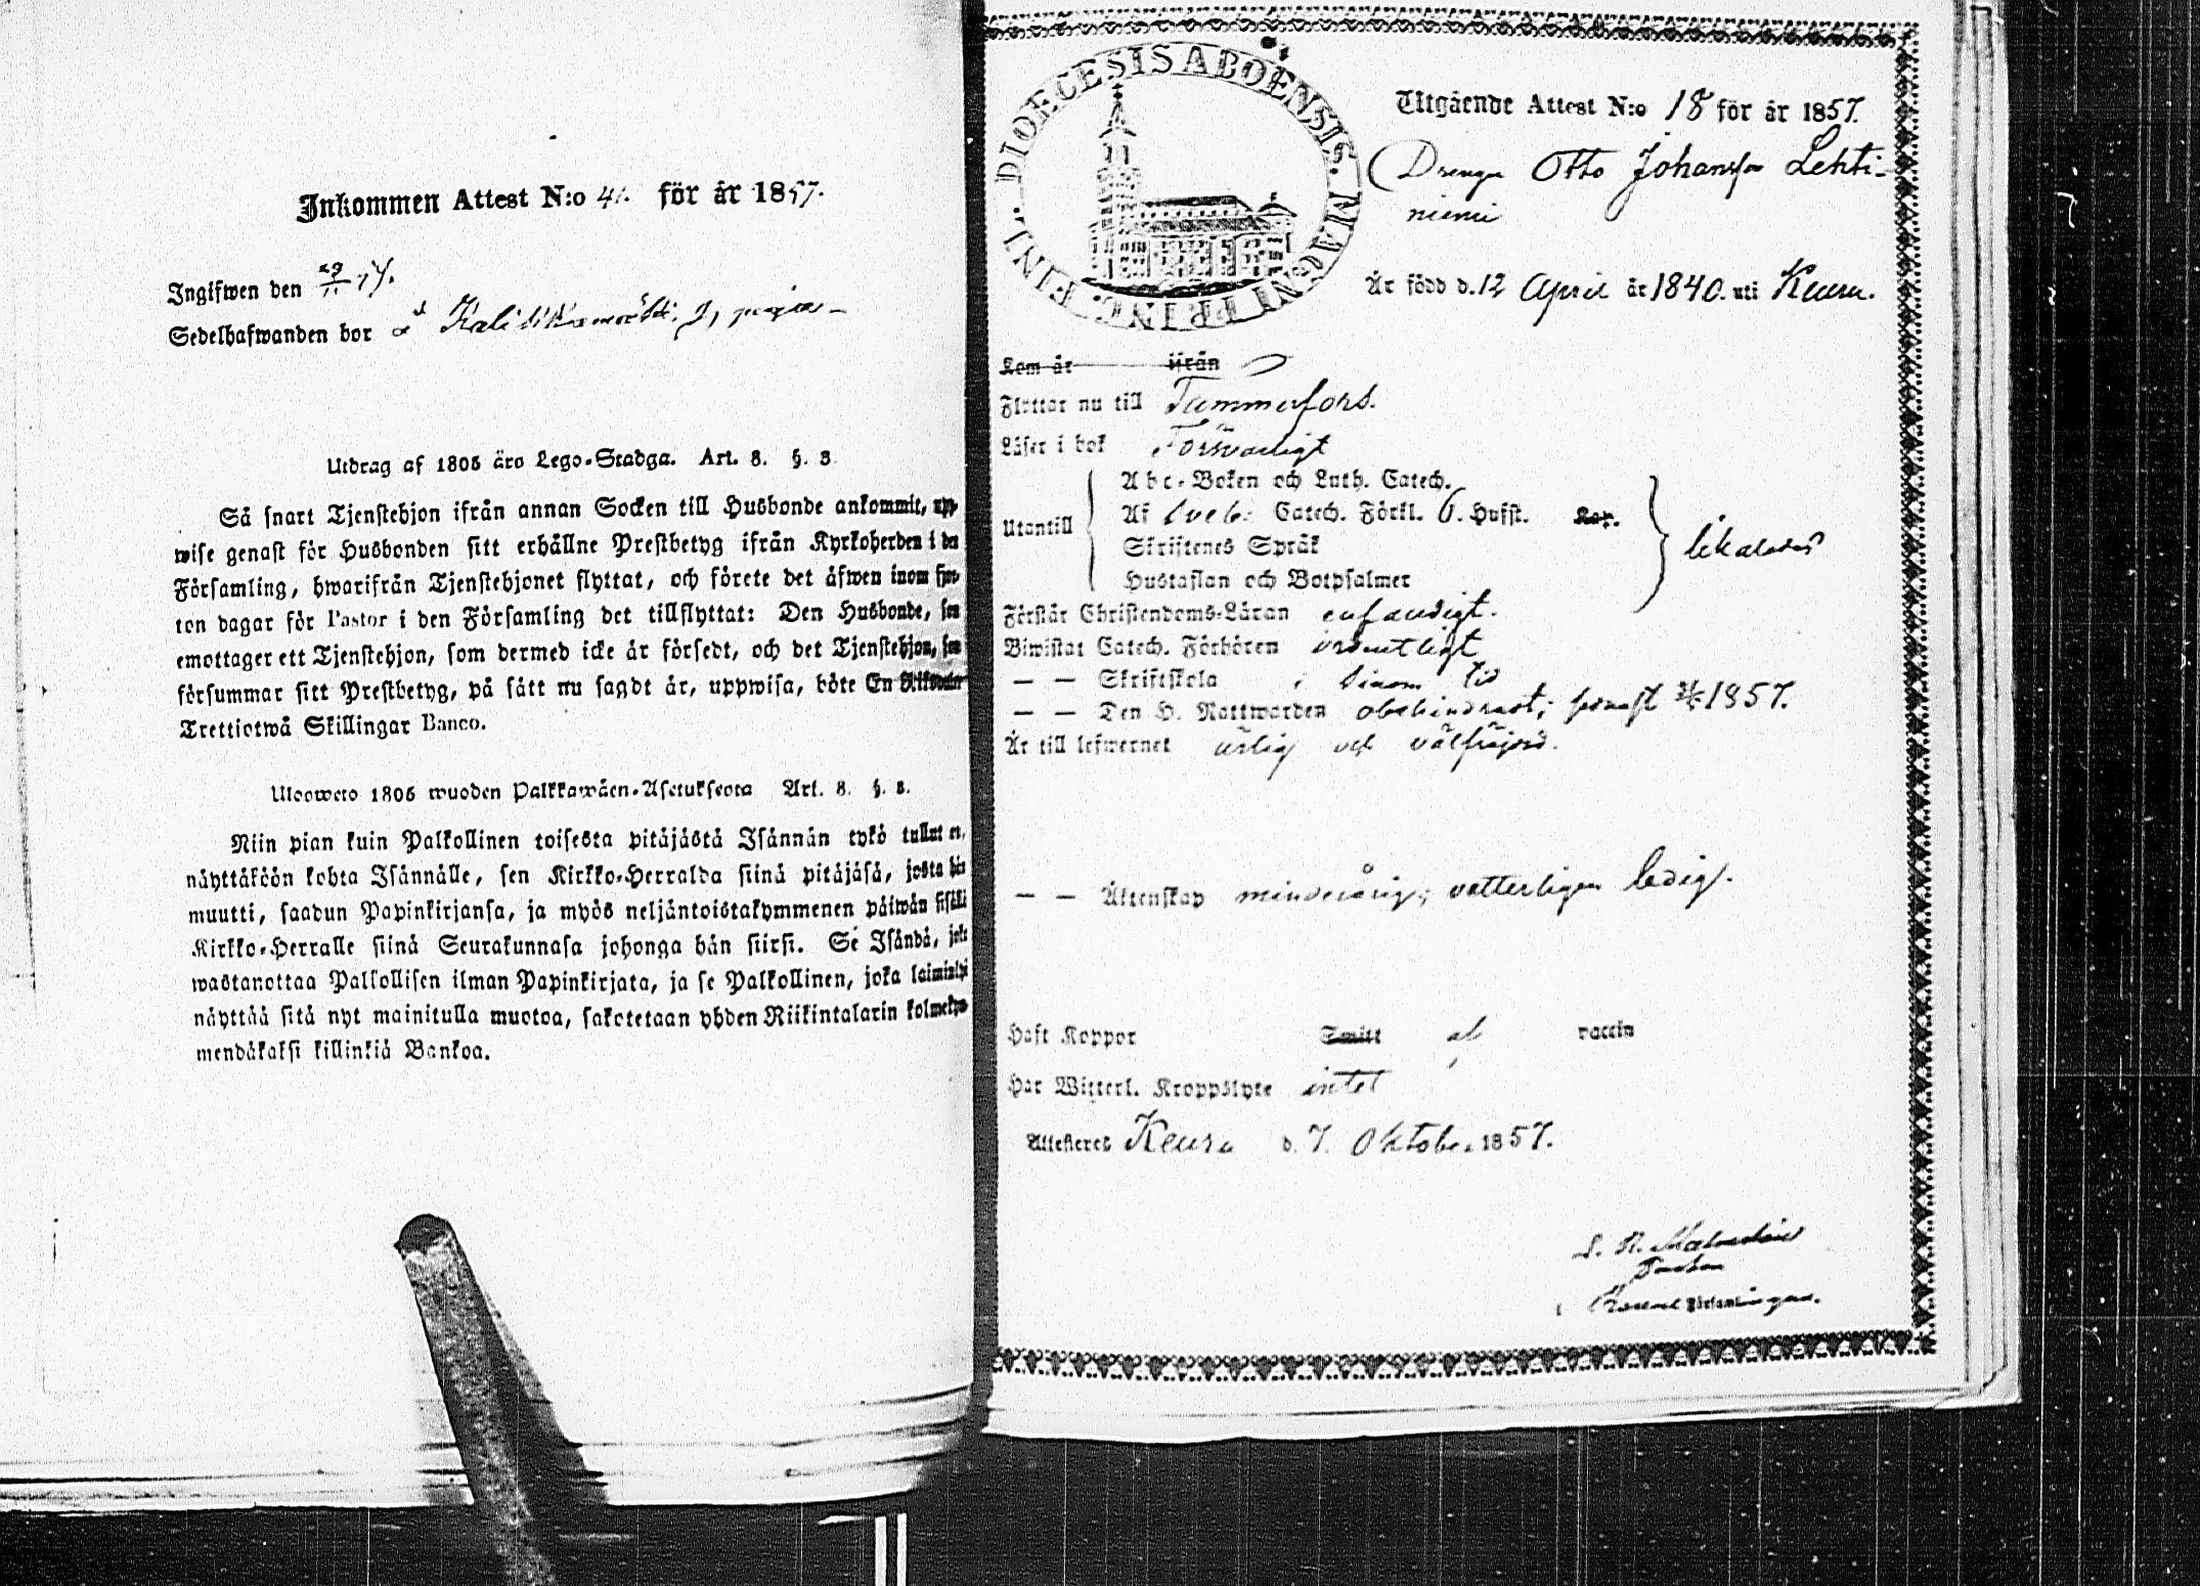 Inkommen Attest N:o 41. för år 1857.
Ingifwen den
Sedelhafwanden bor
Utdrag af 1805 års Lego-Stadga. Art. 8. §. 3.
Så snart Tjenstehjon ifrån annan Socken till Husbonde ankommit, upp-
wise genast för Husbonden sitt erhållne Prestbetyg ifrån Kyrkoherden i den
Församling, hwarifrån Tjenstehjonet flyttat, och förete det äfwen inom fjor-
ton dagar för Pastor i den Församling det tillflyttat: Den Husbonde, som
emottager ett Tjenstehjon, som dermed icke är försedt, och det Tjenstehjon, som
försummar sitt Prestbetyg, på sätt nu sagdt är, uppwisa, böte En Riksdaler
Trettiotwå Skillingar Banco.
Ulosweto 1805 wuoden Palkkawäen-Asetuksesta Art. 8. §. 3.
Niin pian kuin Palkollinen toisesta pitäjästä Isännän tykö tullut on,
näyttäköön kohta Isännälle, sen Kirkko-Herralda siinä pitäjäsä, josta hän
muutti, saadun Papinkirjansa, ja myös neljäntoistakymmenen päiwän sisällä
Kirkko-Herralle siinä Seurakunnasa johonga hän siirsi. Se Isändä, joka
wastanottaa Palkollisen ilman Papinkirjata, ja se Palkollinen, joka laiminlyö
näyttää sitä nyt mainitulla muotoa, sakotetaan yhden Riikintalarin kolmekym-
mendäkaksi killinkiä Bankoa.
DIOECESIS ABOËNSIS. MAGNI PRINC. FINL.
Utgående Attest N:o 18 för år 1857.
Drengen Otto Johansson Lehti-
niemi
Är född d. 12 April år 1840. uti Keuru.
Kom år ifrån
Flyttar nu till Tammerfors.
Läser i bok Försvarligt
Utantill
Abc-Boken och Luth. Catech.
Af Sveb: Catech. Förkl. 6. Hufst. Kap.
Skriftenes Språk
Hustaflan och Botpsalmer
likaledes
Förstår Christendoms-Läran enfaldigt.
Biwistat Catech. Förhören ordentligt
— — Skriftskola i sinom tid
— — Den H. Nattwarden obehindradt; senast 1857.
Är till lefwernet ärlig och välfräjdad.
— — Äktenskap minderårig; vetterligen ledig.
Haft Koppor Smitt af vaccin
Har Witterl. Kroppslyte intet
Attesteras Keuru d. 7. Oktober 1857.
Pastor
Församlingar.